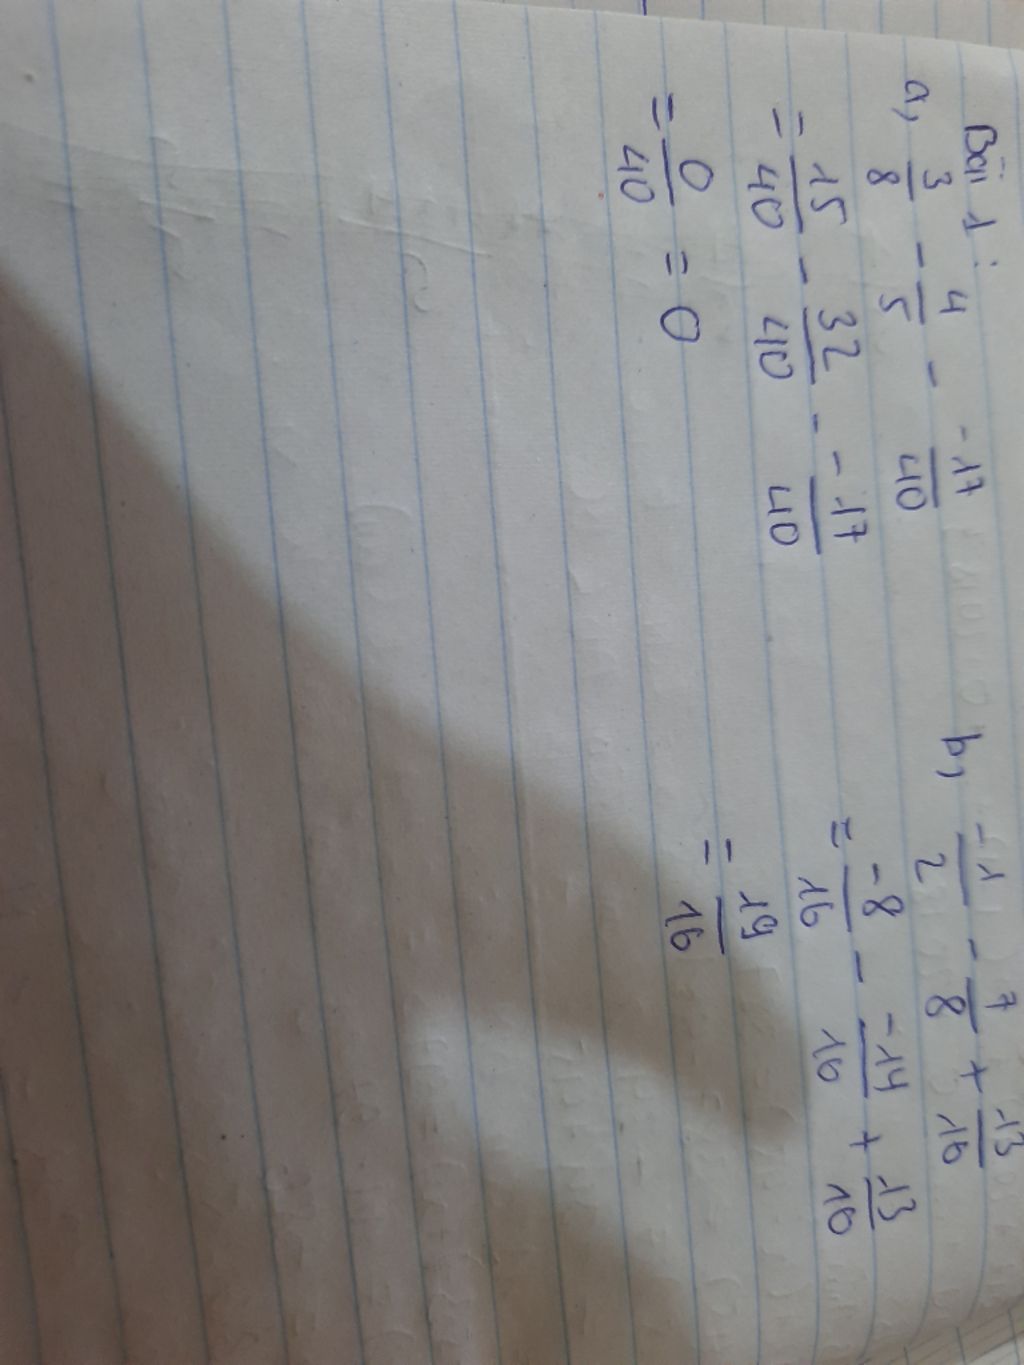 Bài 1:
a, 3/8 - 4/5 - -17/40
= 15/40 - 32/40 - -17/40
= 0/40 = 0
b, -1/2 - 7/8 + 13/16
= -8/16 - -14/16 + 13/16
= 19/16